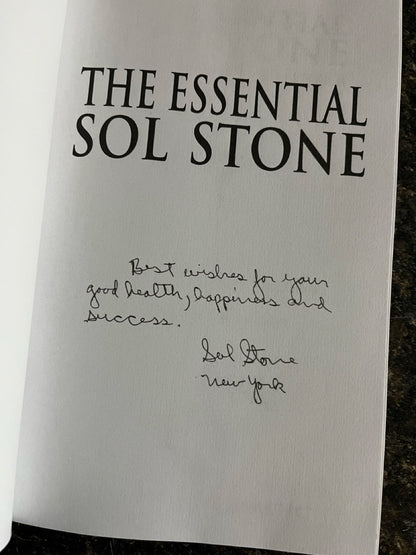 THE ESSENTIAL
SOL STONE
Best wishes for your
good health, happiness and
success.
Sol Stone
New York